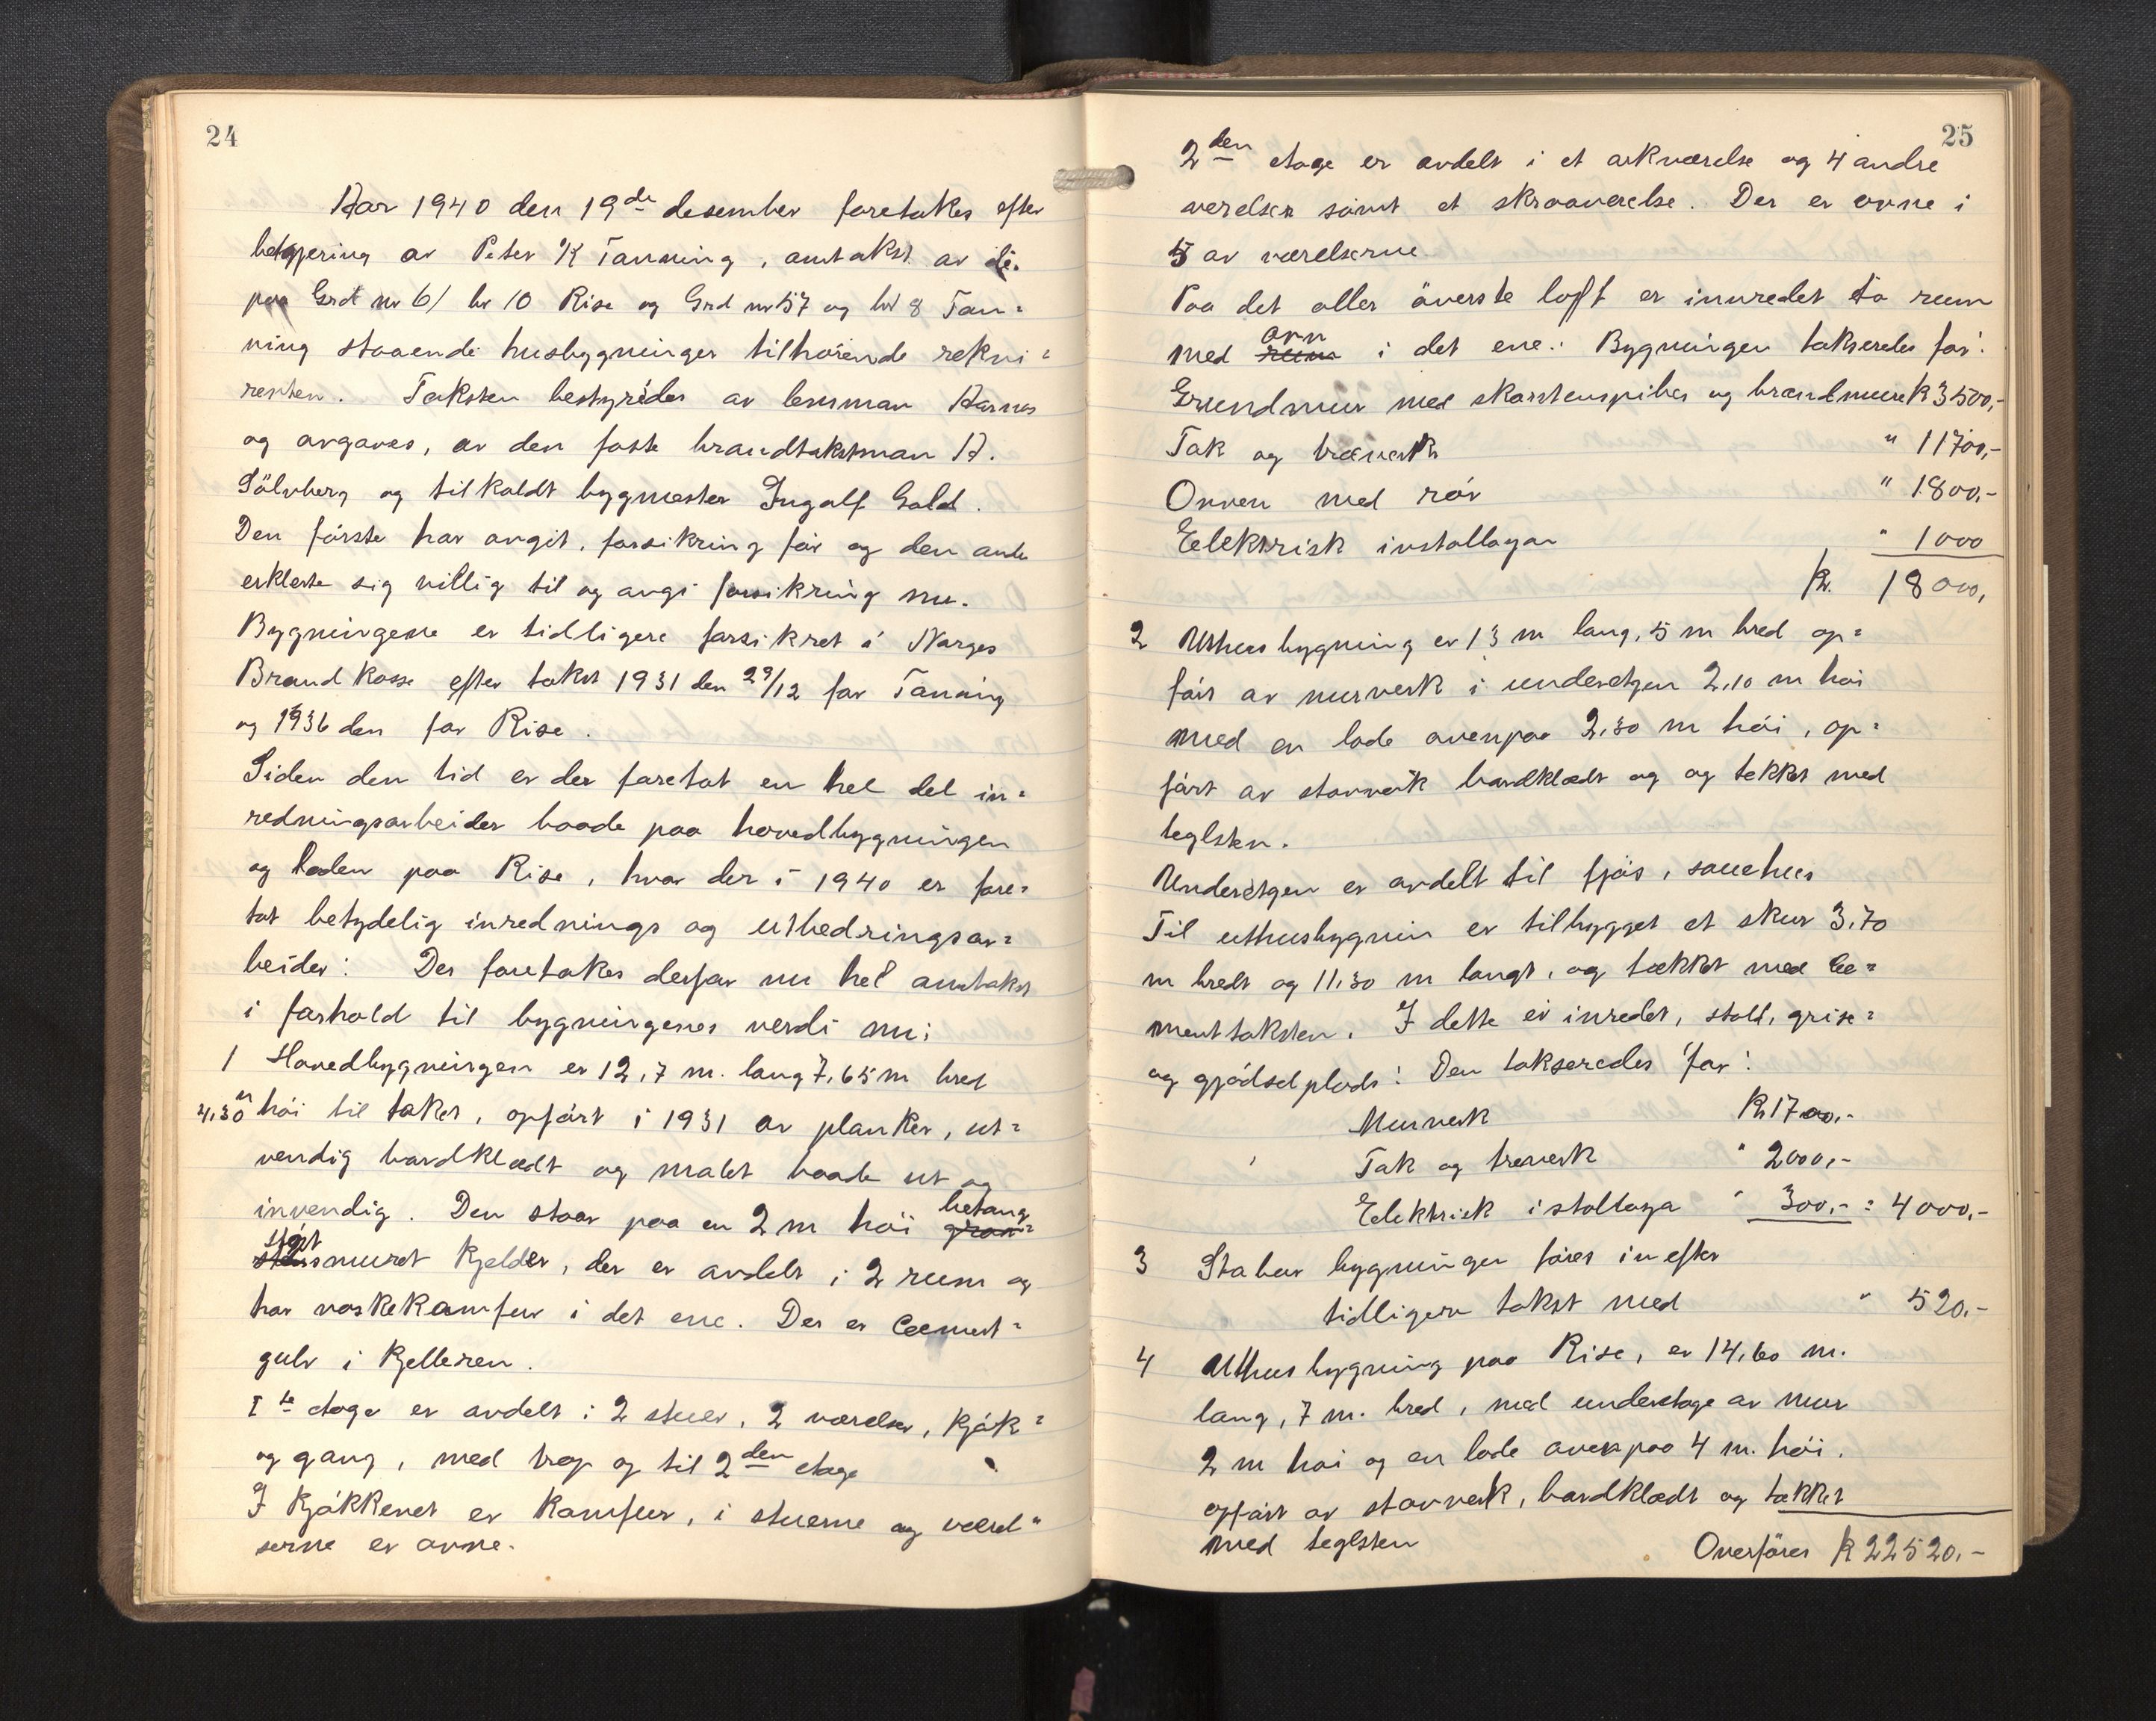 24
Aar 1940 den 19de desember foretokes efter
begjæring av Peter K Tanning, omtakst av de
paa Grd nr 61 br 10 Rise og Grd nr 57 og br 8 Tan=
ning staaende husbygninger tilhörende rekvi=
renten. Taksten bestyrédes av lensman Aarnes
og avgaves, av den faste brandtakstman A.
Sölvberg og tilkaldt bygmester Ingolf Gald.
Den förste har avgit, forsikring för og den ande
erklerte sig villig til og avgi forsikring nu.
Bygningene er tidligere forsikret i Norges
Brandkasse efter takst 1931 den 29/12 for Taning
og 1936 den for Rise.
Siden den tid er der foretat en hel del in=
redningsarbeider baade paa hovedbygningen
og loden paa Rise, hvor der i 1940 er fore=
tat betydelig inrednings og utbedringsar=
beider: Der foretokes derfor nu hel omtakst
i forhold til bygningenes verdi nu:
1 Hovedbygningen er 12,7 m. lang 7,65 m bred
4,30 m höi til taket, opfört i 1931 av planker, ut=
vendig bordklædt og malet baade ut og
invendig. Den staar paa en 2 m höi betong
gran=
stöpt
stens muret kjelder, der er avdelt i 2 rum og
har vaskekamfur i det ene. Der er Cement=
gulv i kjelleren.
I te etage er avdelt i 2 stuer, 2 værelser, kjök=
og gang, med trap og til 2den etage
I kjökkenet er kamfur, i stuerne og værel"
serne er ovne.
25
2den etage er avdelt i et arkværelse og 4 andre
værelser samt et skraaværelse. Der er ovne i
5 av værelserne
Paa det aller överste loft er innredet to rum
ovn
med rum i det ene: Bygningen takseredes for:
Grundmur med skorstenspiber og brandmure K 3500,-
Tak og træverk " 11700,-
Ovnen med rör " 1800,-
Eelektrisk instollasjon " 1000
Kr. 18000,
2 Uthusbygning er 13 m lang, 5 m bred op=
fört av murverk i underetgen 2,10 m höi
med en lode ovenpaa 2,30 m höi, op=
fört av stavverk bordklædt og og tekket med
teglsten.
Underetgen er avdelt til fjös, sauehus
Til uthusbygnin er tilbygget et skur 3,70
m bredt og 11,30 m langt, og tækket med Ce=
menttaksten. I dette er inredet, stall, grise=
og gjödselplads: Den takseredes for:
Murverk Kr 1700,-
Tak og treverk " 2000,-
Eelektrisk istollasja " 300,- = 4000,-
3 Stabur bygningen föres in efter
tidligere takst med " 520,-
4 Uthusbygning paa Rise, er 14,60 m.
lang, 7 m. bred, med underetage av mur
2 m höi og en lode ovenpaa 4 m. höi.
opfört av stavverk, bordklædt og tækket
med teglsten Overföres K 22520,-